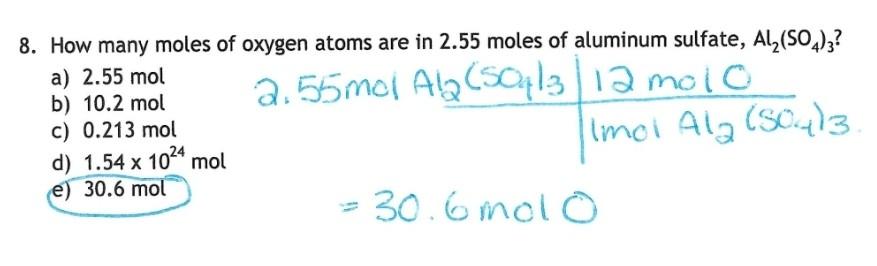 8. How many moles of oxygen atoms are in 2.55 moles of aluminum sulfate, Al₂(SO₄)₃?
a) 2.55 mol
b) 10.2 mol
c) 0.213 mol
d) 1.54 x 10²⁴ mol
e) 30.6 mol
2.55mol Al₂(SO₄)₃ | 12 mol O
1mol Al₂(SO₄)₃
= 30.6 mol O